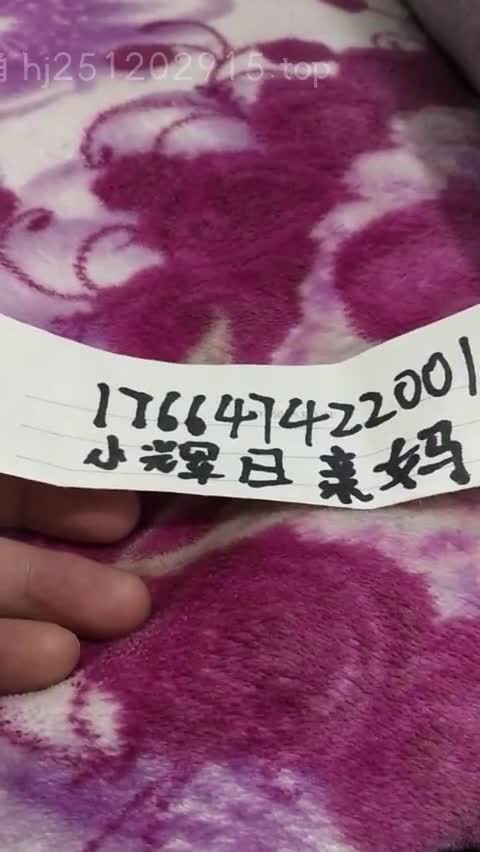 hj251202915.top
1766474422001
小辉日亲妈